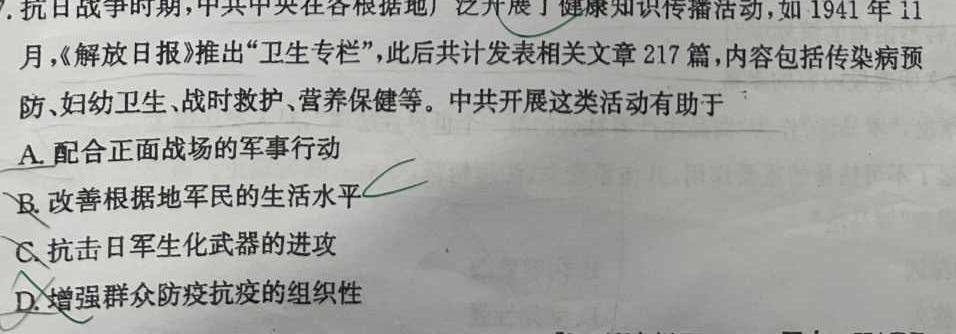 抗日战争时期,中共中央在各根据地广泛开展了健康知识传播活动,如 1941 年 11
月,《解放日报》推出“卫生专栏”,此后共计发表相关文章 217 篇,内容包括传染病预
防、妇幼卫生、战时救护、营养保健等。中共开展这类活动有助于
A. 配合正面战场的军事行动
B. 改善根据地军民的生活水平
C. 抗击日军生化武器的进攻
D. 增强群众防疫抗疫的组织性